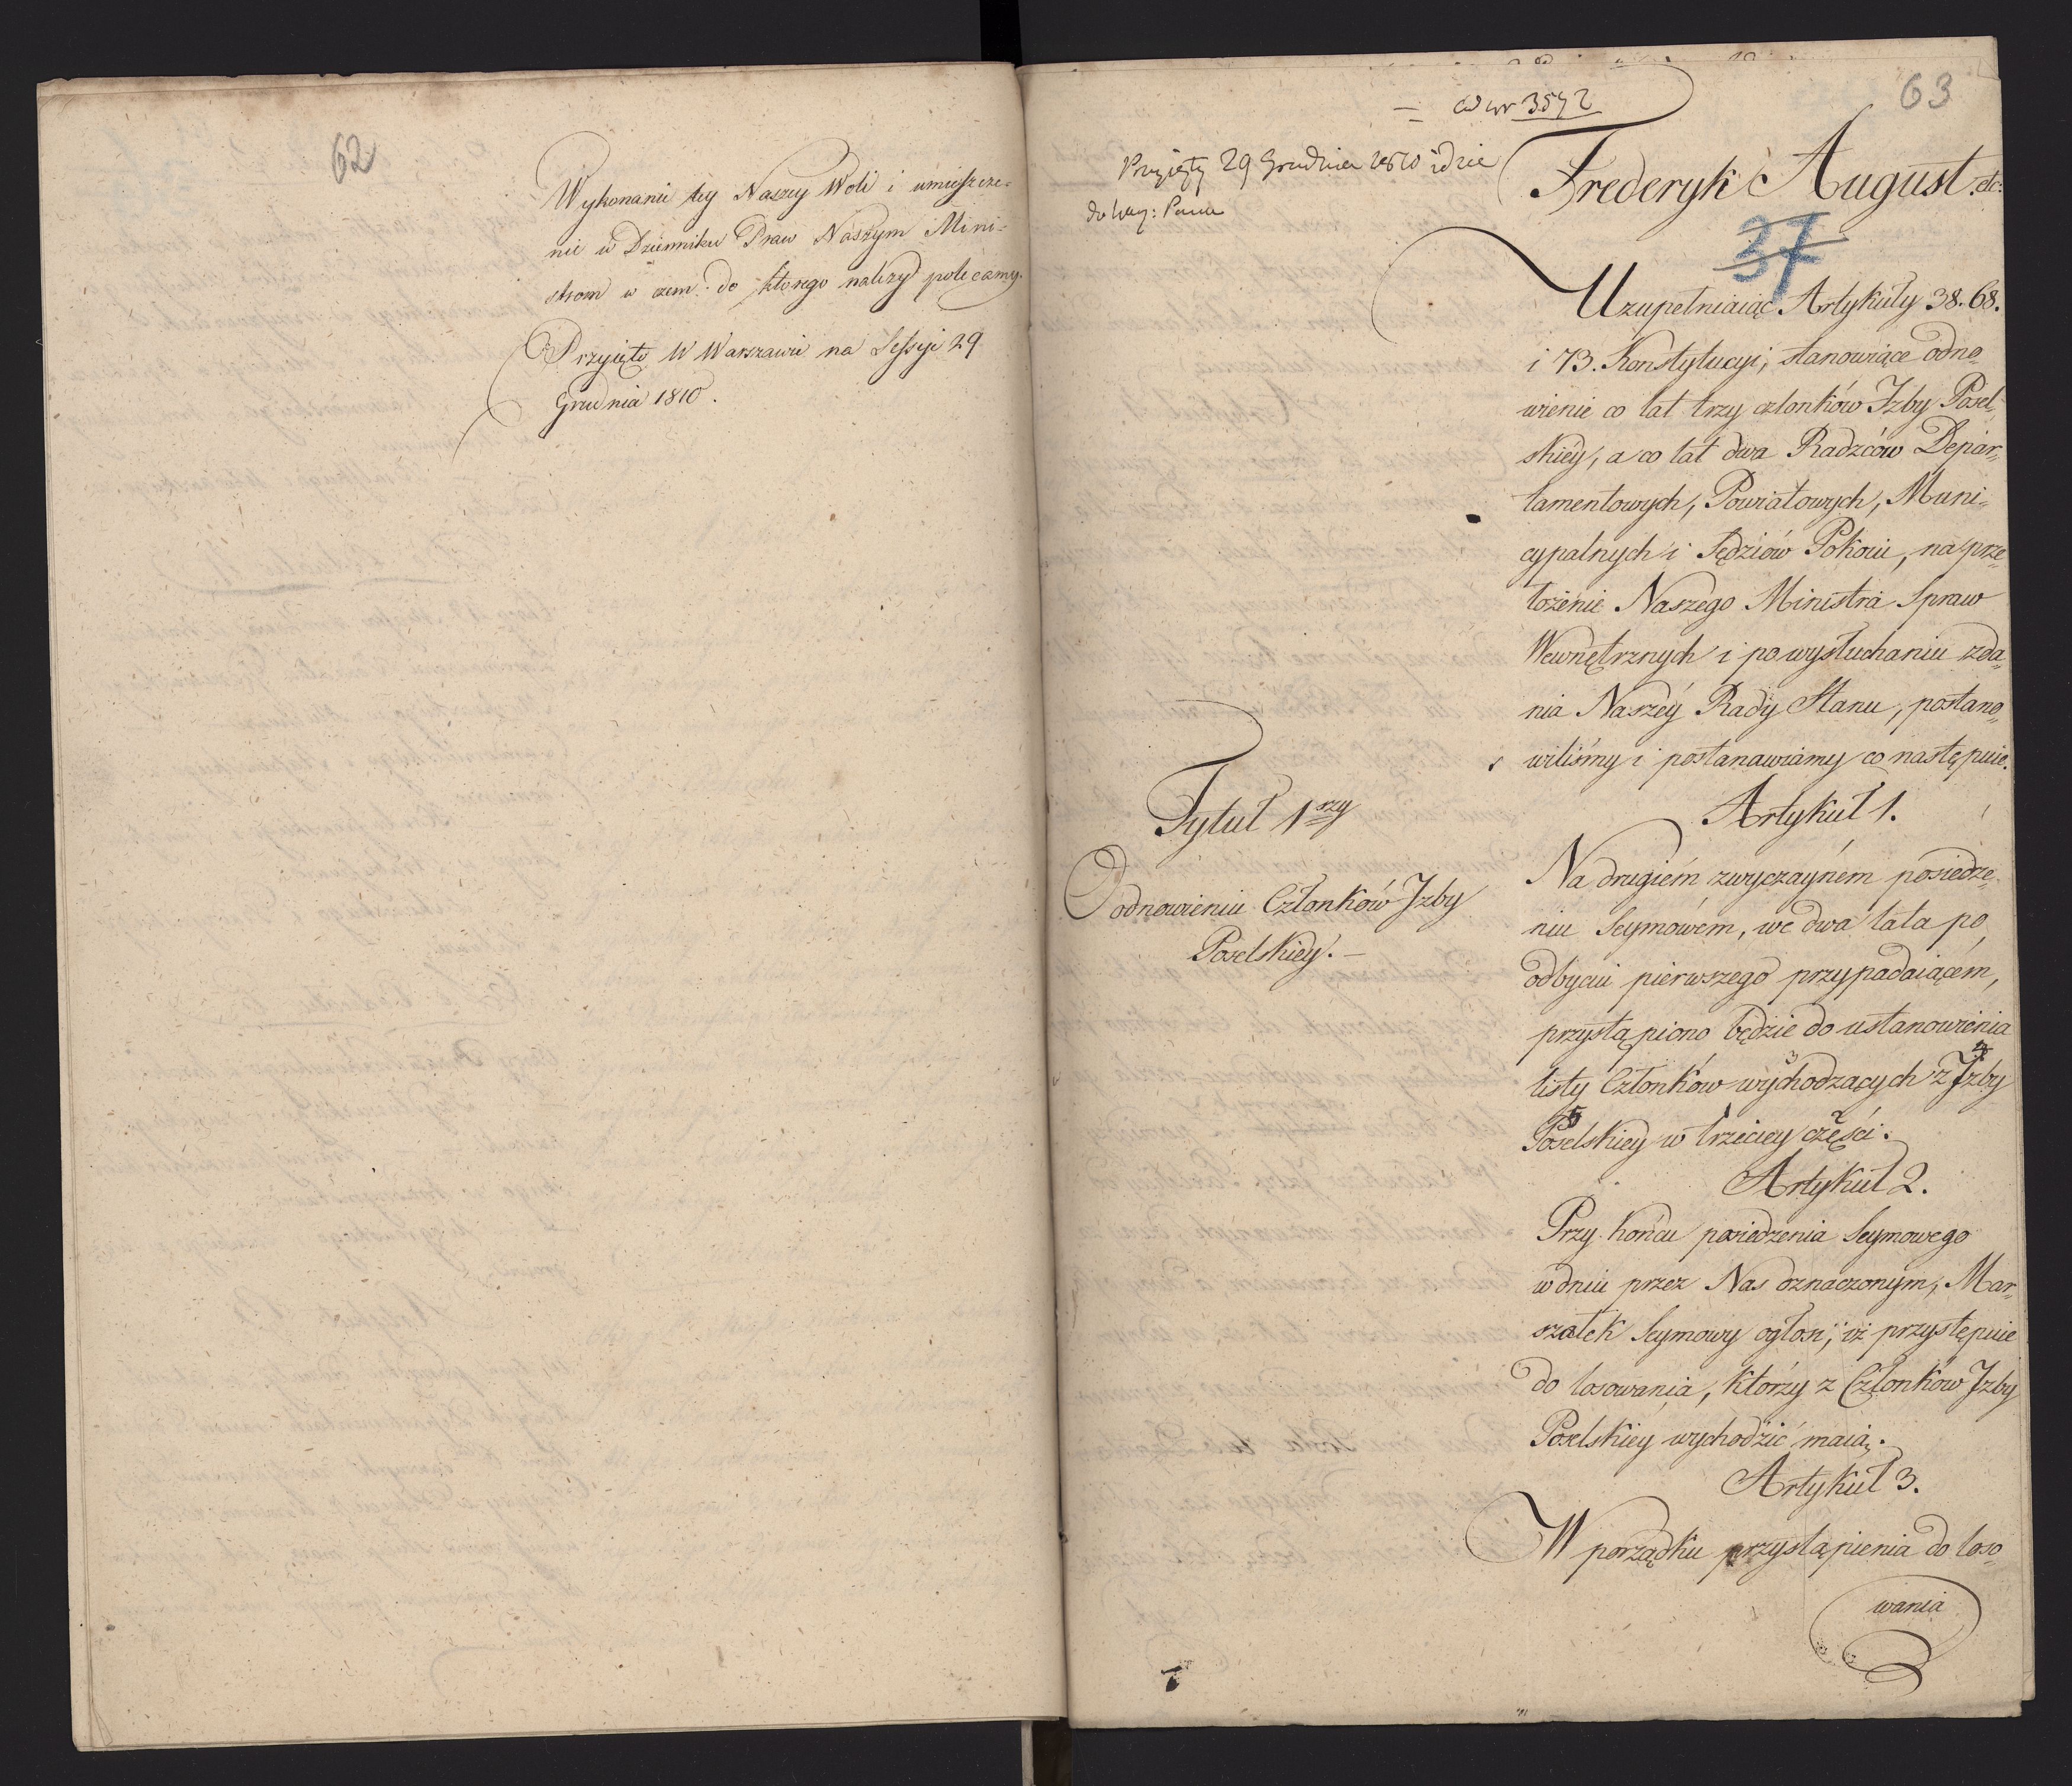 62
Wykonanie tey Naszey Woli i umieszcze-
nie w Dzienniku Praw Naszym Mini-
strom w czem do ktorego należy polecamy.
Przyięto W Warszawie na Sessyi 29
Grudnia 1810.
63
3542
Przyięty 29 Grudnia 1810 idzie
do Nay: Pana
Frederyk August. etc:
37
Uzupełniaiąc Artykuły 38. 68.
i 73. Konstytucyi, stanowiące odno-
wienie co lat trzy członków Izby Posel-
skiéy, a co lat dwa Radzców Depar-
tamentowych, Powiatowych, Muni-
cypalnych i Sędziów Pokoiu, na prze-
łożenie Naszego Ministra Spraw
Wewnętrznych i po wysłuchaniu zda-
nia Naszéy Rady Stanu, postano-
wiliśmy i postanawiamy co następuie.
Tytuł 1szy
O odnowieniu Członków Izby
Poselskiey. –
Artykuł 1.
Na drugiém zwyczaynem posiedze-
niu Seymowem, we dwa lata po
odbyciu pierwszego przypadaiącém,
przystąpiono będzie do ustanowienia
listy Członków wychodzących z Izby
Poselskiey w trzeciey części.
Artykuł 2.
Przy końcu posiedzenia Seymowego
w dniu przez Nas oznaczonym, Mar-
szałek Seymowy ogłosi, iż przystępuie
do losowania, którzy z Członków Izby
Poselskiéy wychodzić maią.
Artykuł 3.
W porządku przystąpienia do loso-
wania